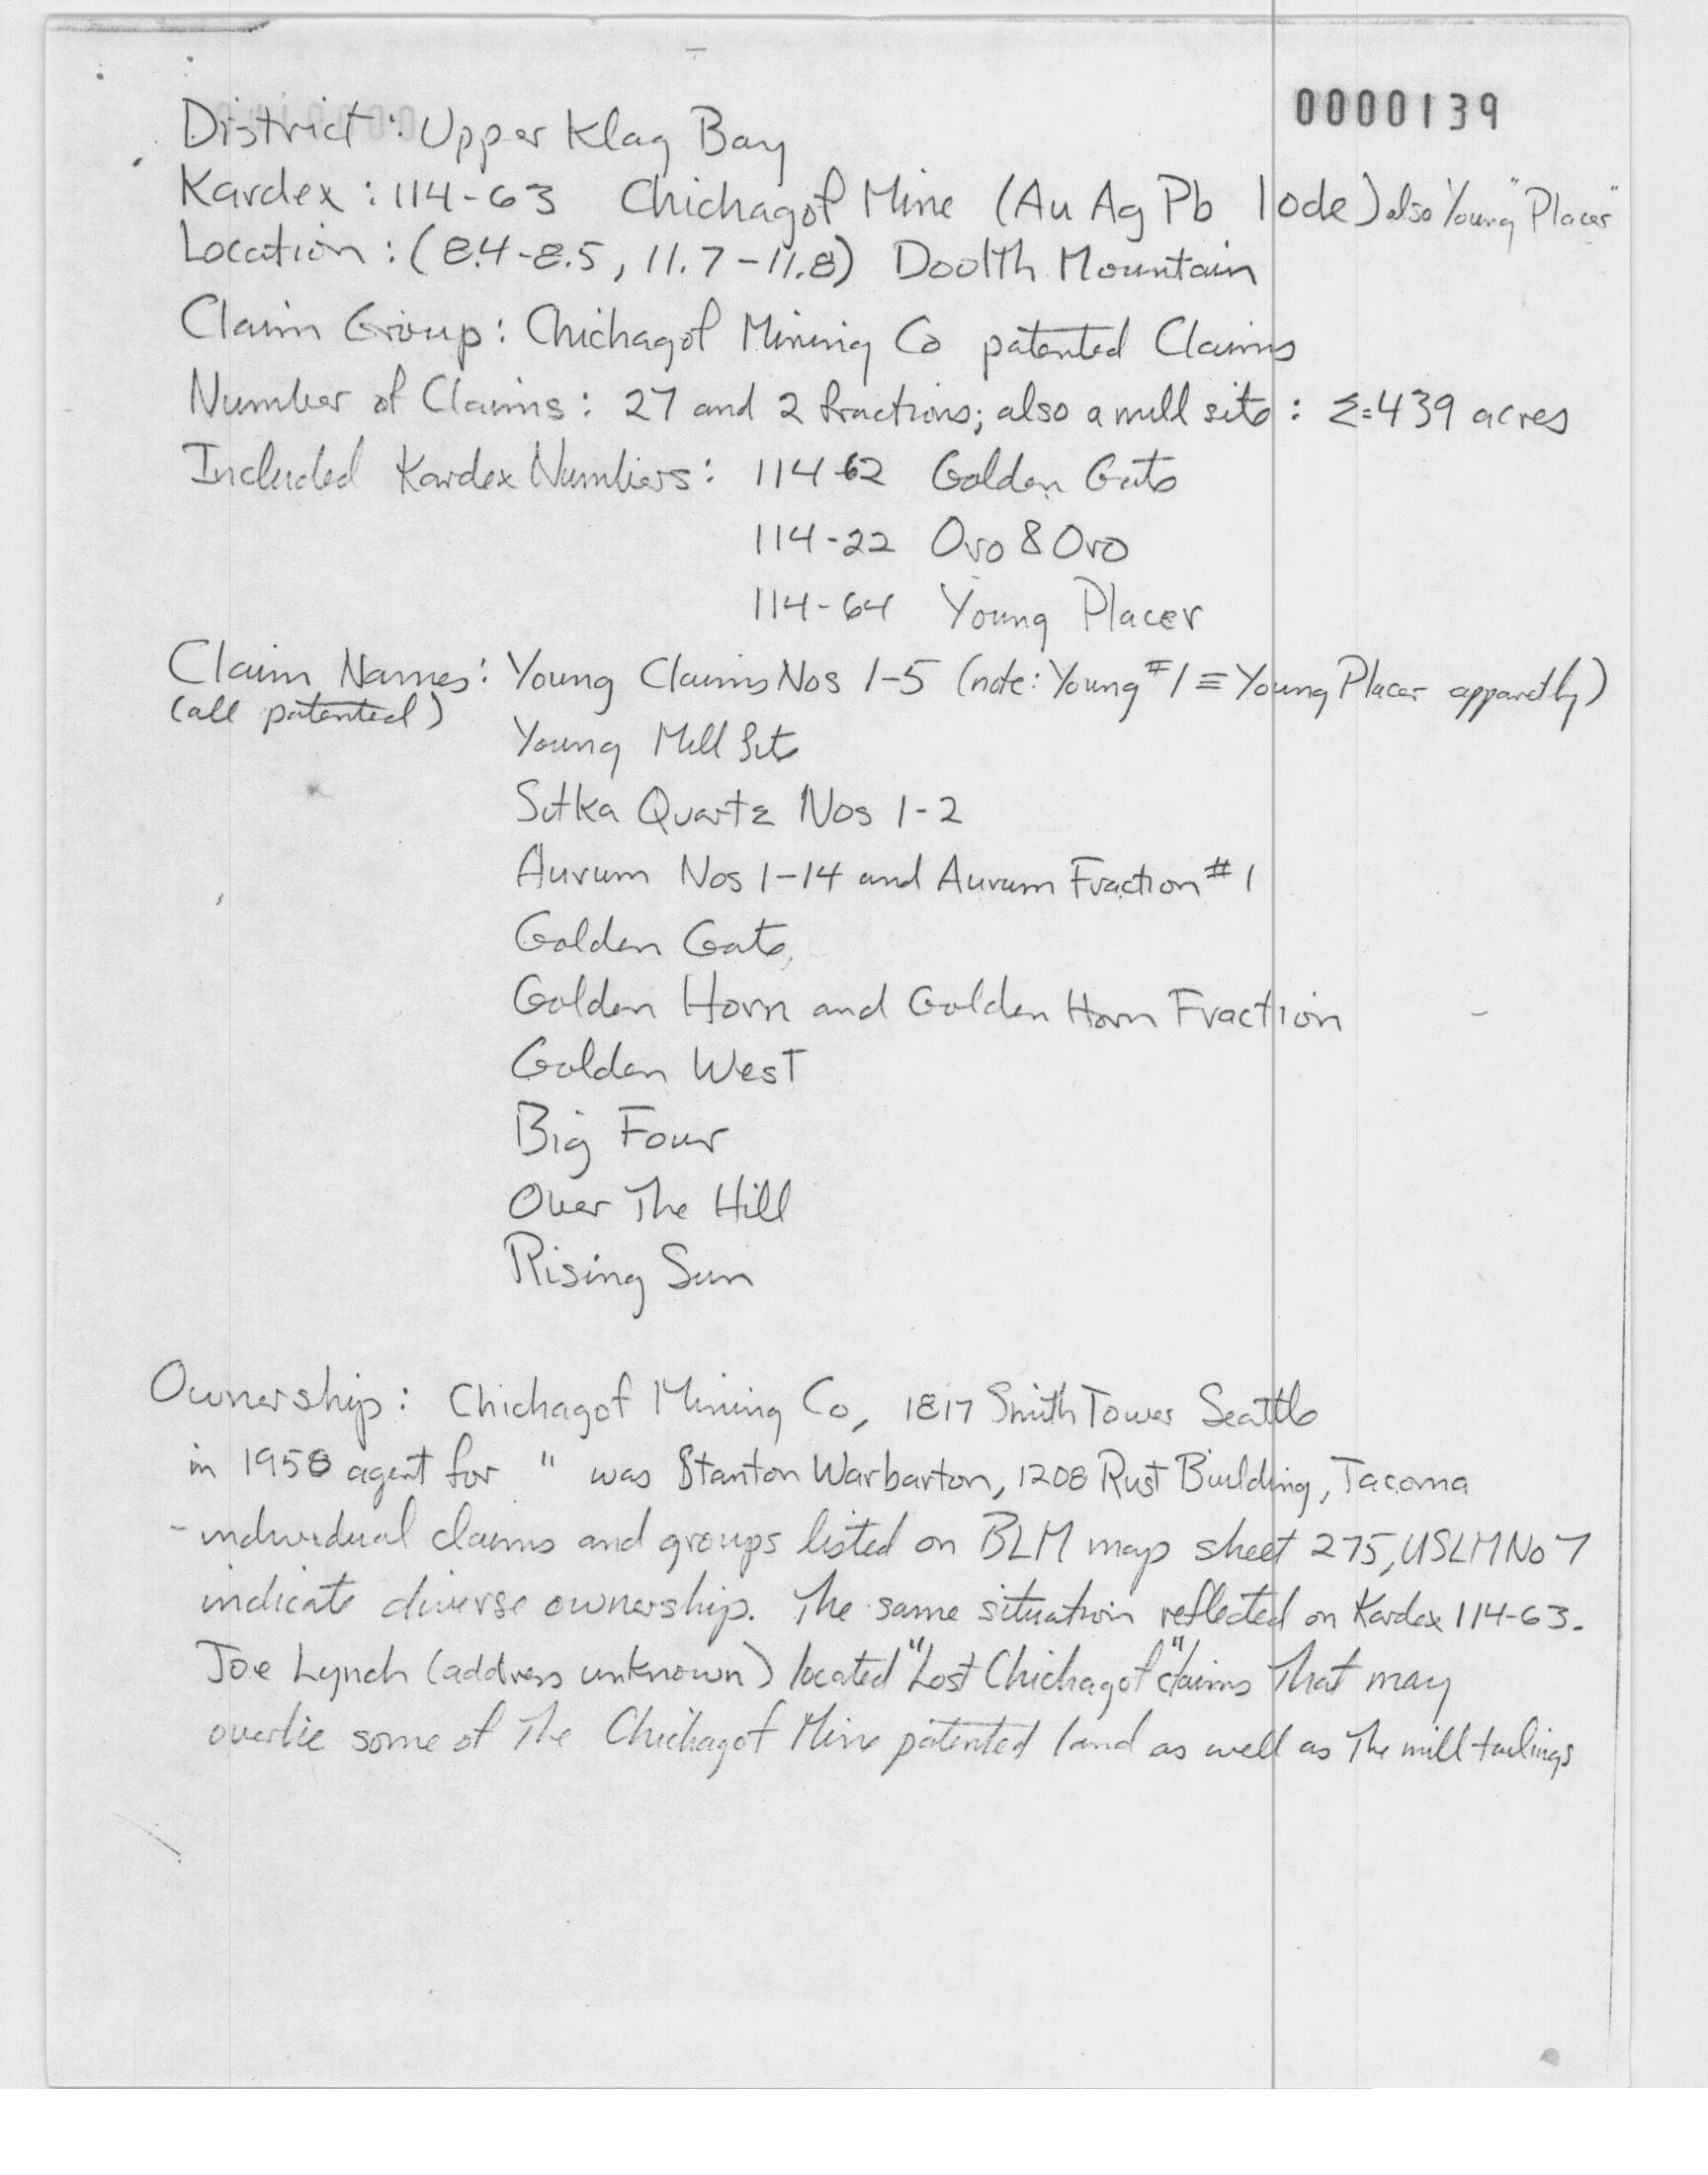 0000139
District: Upper Klag Bay
Kardex: 114-63 Chichagof Mine (Au Ag Pb lode) also Young "Placer"
Location: (8.4-8.5, 11.7-11.8) Doolth Mountain
Claim Group: Chichagof Mining Co patented Claims
Number of Claims: 27 and 2 fractions; also a mill site: Σ=439 acres
Included Kardex Numbers: 114-62 Golden Gate
114-22 Oro & Oro
114-64 Young Placer
Claim Names: Young Claims Nos 1-5 (note: Young #1 ≡ Young Placer apparetly)
(all patented)
Young Mill Site
Sitka Quartz Nos 1-2
Aurum Nos 1-14 and Aurum Fraction #1
Golden Gate
Golden Horn and Golden Horn Fraction
Golden West
Big Four
Over The Hill
Rising Sun
Ownership: Chichagof Mining Co, 1817 Smith Tower Seattle
in 1958 agent for " was Stanton Warbarton, 1208 Rust Building, Tacoma
- individual claims and groups listed on BLM map sheet 275, USLM No 7
indicate diverse ownership. The same situation reflected on Kardex 114-63.
Joe Lynch (address unknown) located "Lost Chichagof" claims That may
overlie some of The Chichagof Mine patented land as well as The mill tailings